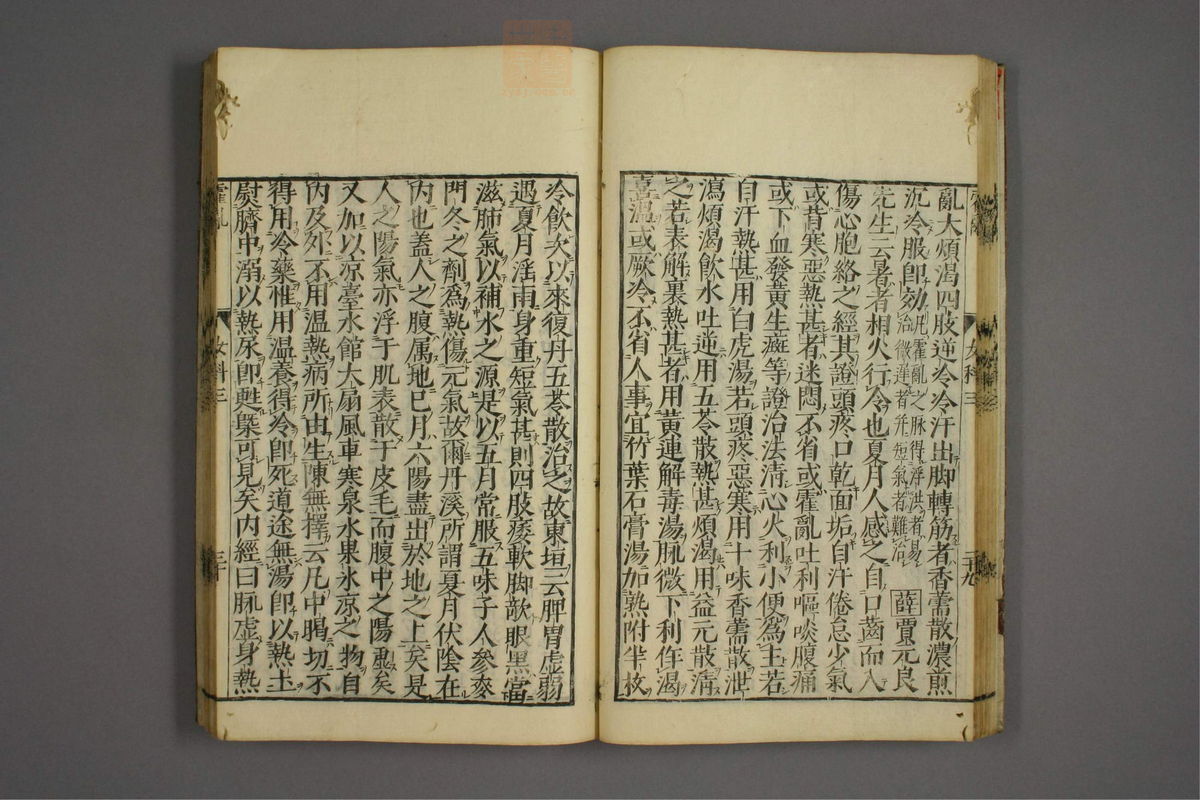 亂大煩渴四肢逆冷冷汗出脚轉筋者香薷散濃煎
沉冷服卽効
凡霍亂之脉得浮洪者易
治微遲者并短氣者難治
薛賈元良
先生云暑者相火行令也夏月人感之自口齒而入
傷心胞絡之經其證頭疼口乾面垢自汗倦怠少氣
或背寒惡熱甚者迷悶不省或霍亂吐利嘔啖腹痛
或下血發黃生癍等證治法清心火利小便爲主若
自汗熱甚用白虎湯若頭疼惡寒用十味香薷散泄
瀉煩渴飲水吐逆用五苓散熱甚煩渴用益元散清
之若表解裏熱甚者用黃連解毒湯脉微下利作渴
喜温或厥冷不省人事宜竹葉石膏湯加熟附半枚
女科三
二十九
冷飲次以來復丹五苓散治之故東垣云脾胃虛弱
遇夏月淫雨身重短氣甚則四肢痿軟脚欹眼黑當
滋肺氣以補水之源是以五月常服五味子人參麥
門冬之劑爲熱傷元氣故爾丹溪所謂夏月伏陰在
內也蓋人之腹属地巳月六陽盡出於地之上矣是
人之陽氣亦浮于肌表散于皮毛而腹中之陽虛矣
又加以凉臺水館大扇風車寒泉水果氷凉之物自
內及外不用温熱病所由生陳無擇云凡中暍切不
得用冷藥惟用温養得冷卽死道途無湯卽以熱土
熨臍中溺以熱尿卽甦槩可見矣內經曰脉虛身熱
霍亂
女科三
三十